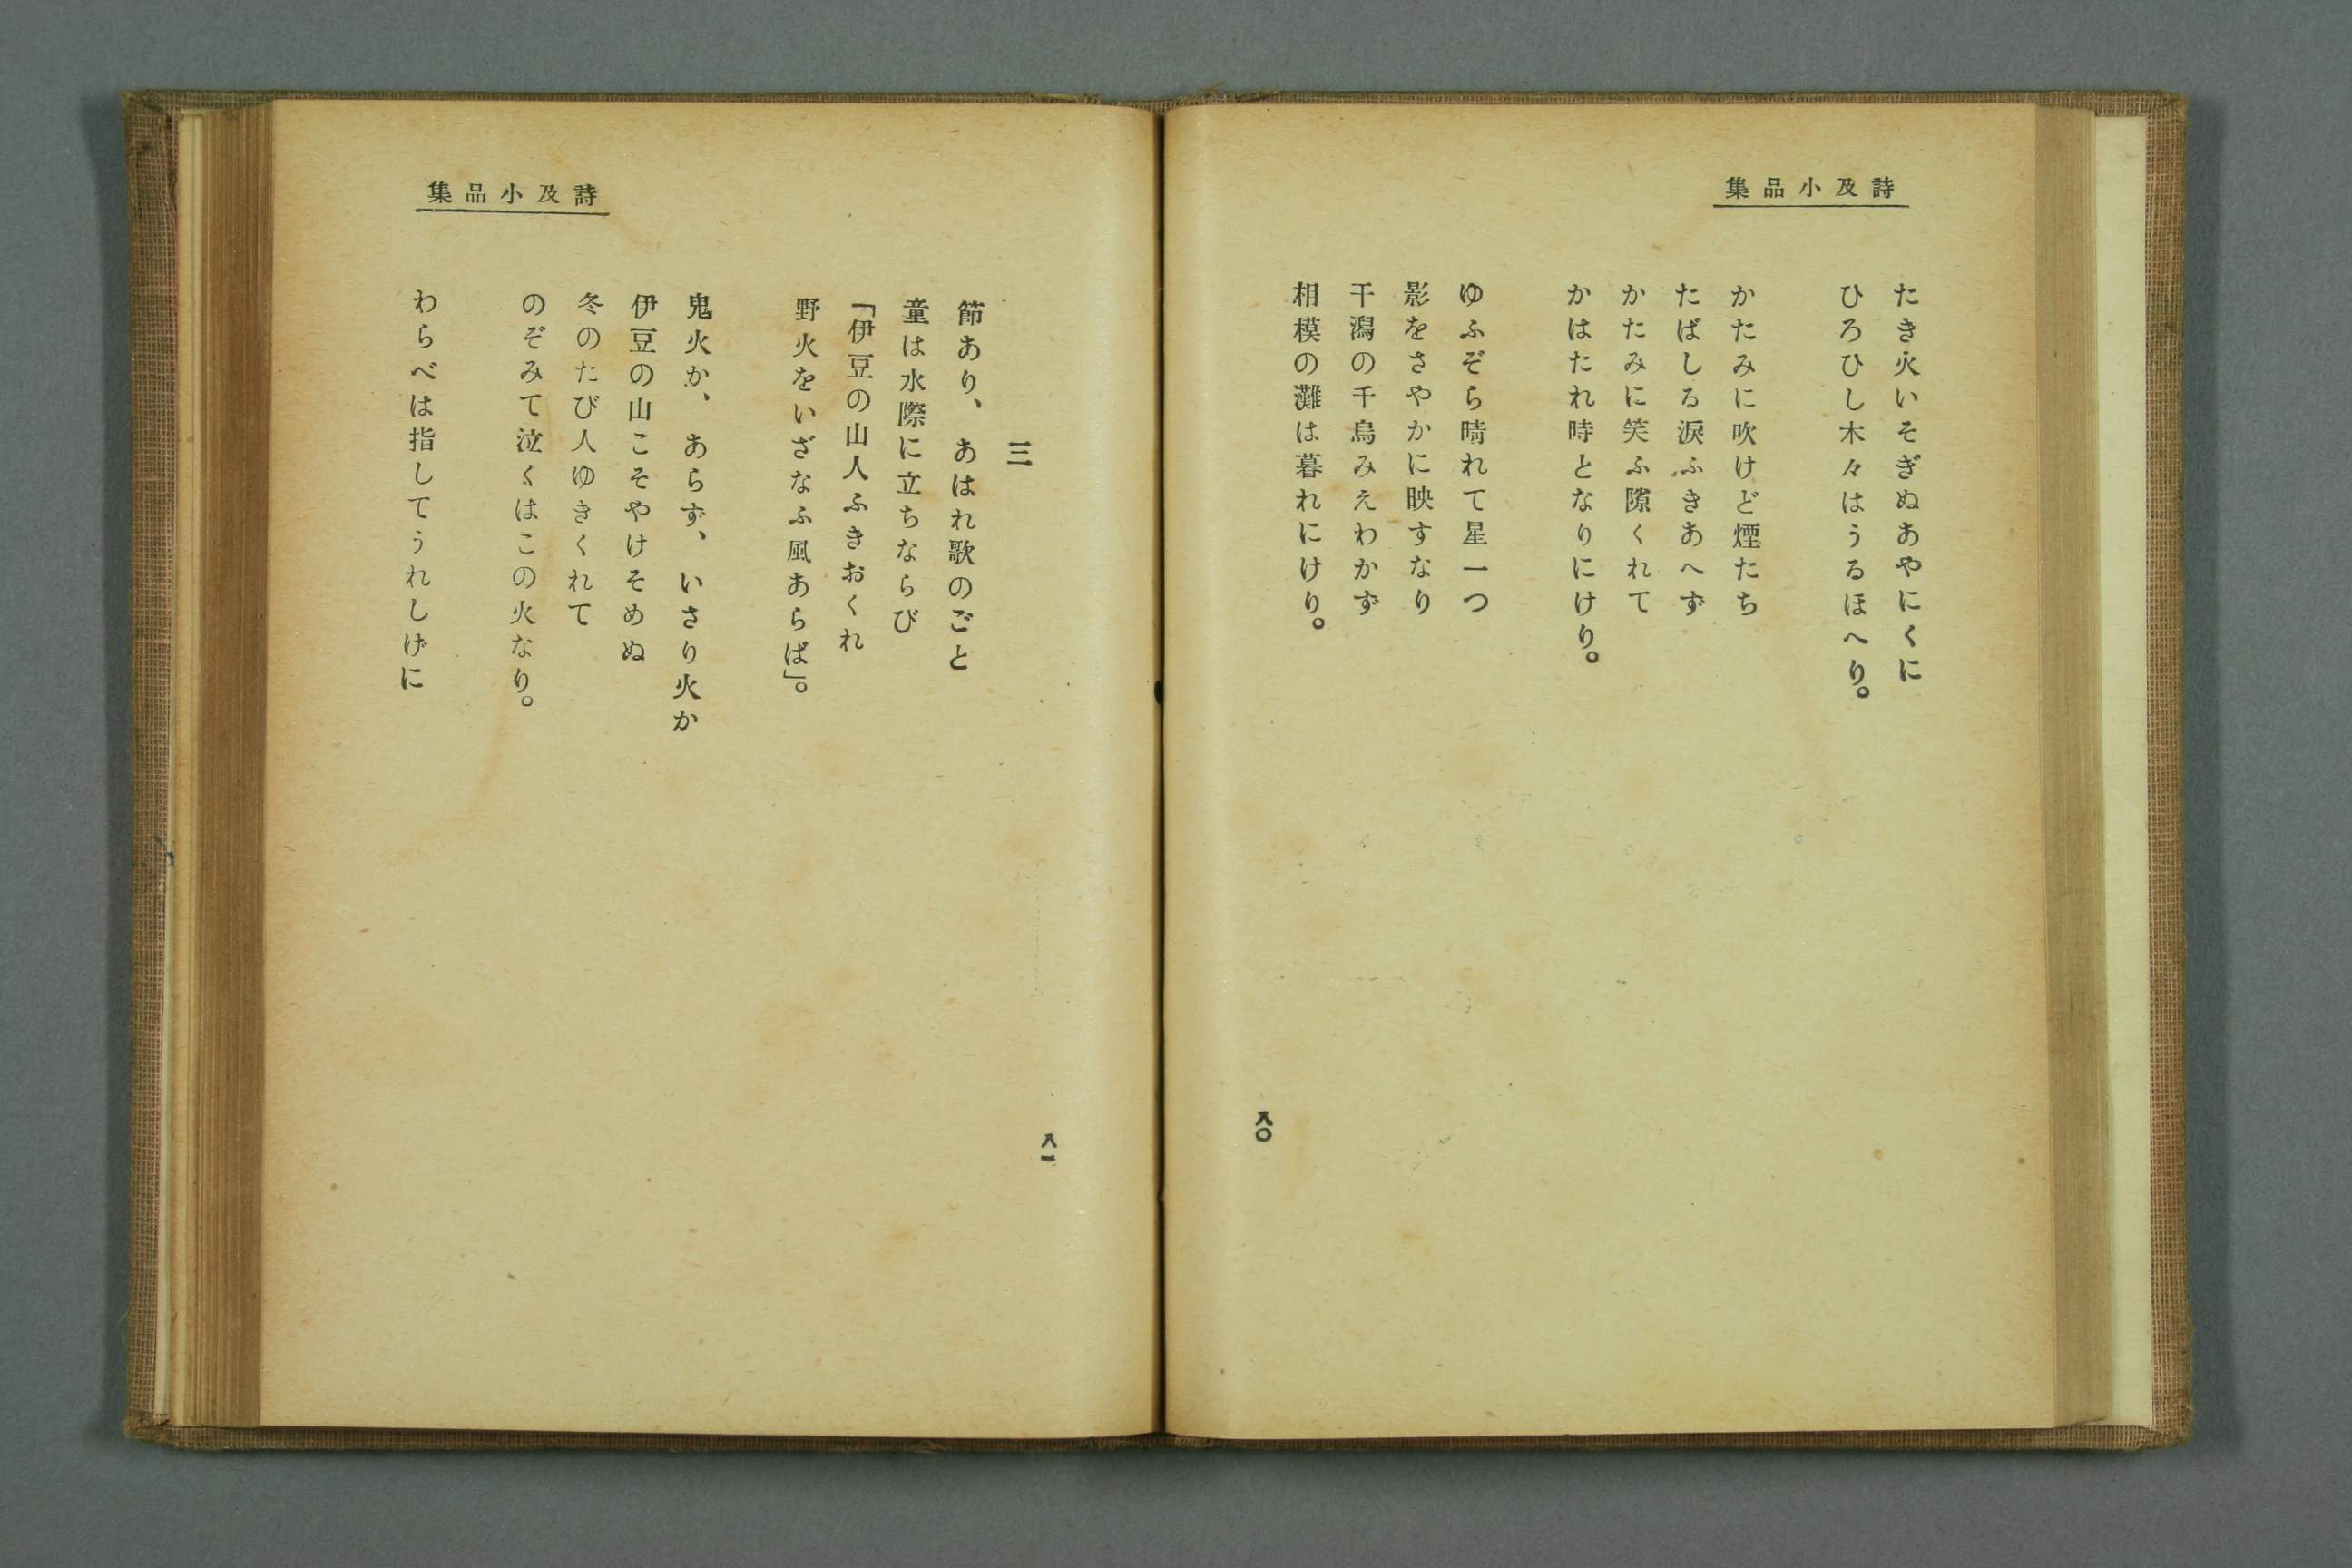 詩及小品集
たき火いそぎぬあやにくに
ひろひし木々はうるほへり。
かたみに吹けど煙たち
たばしる涙ふきあへず
かたみに笑ふ隙くれて
かはたれ時となりにけり。
ゆふぞら晴れて星一つ
影をさやかに映すなり
干潟の千鳥みえわかず
相模の灘は暮れにけり。
八〇
詩及小品集
三
節あり、あはれ歌のごと
童は水際に立ちならび
「伊豆の山人ふきおくれ
野火をいざなふ風あらば」。
鬼火か、あらず、いさり火か
伊豆の山こそやけそめぬ
冬のたび人ゆきくれて
のぞみて泣くはこの火なり。
わらべは指してうれしげに
八一